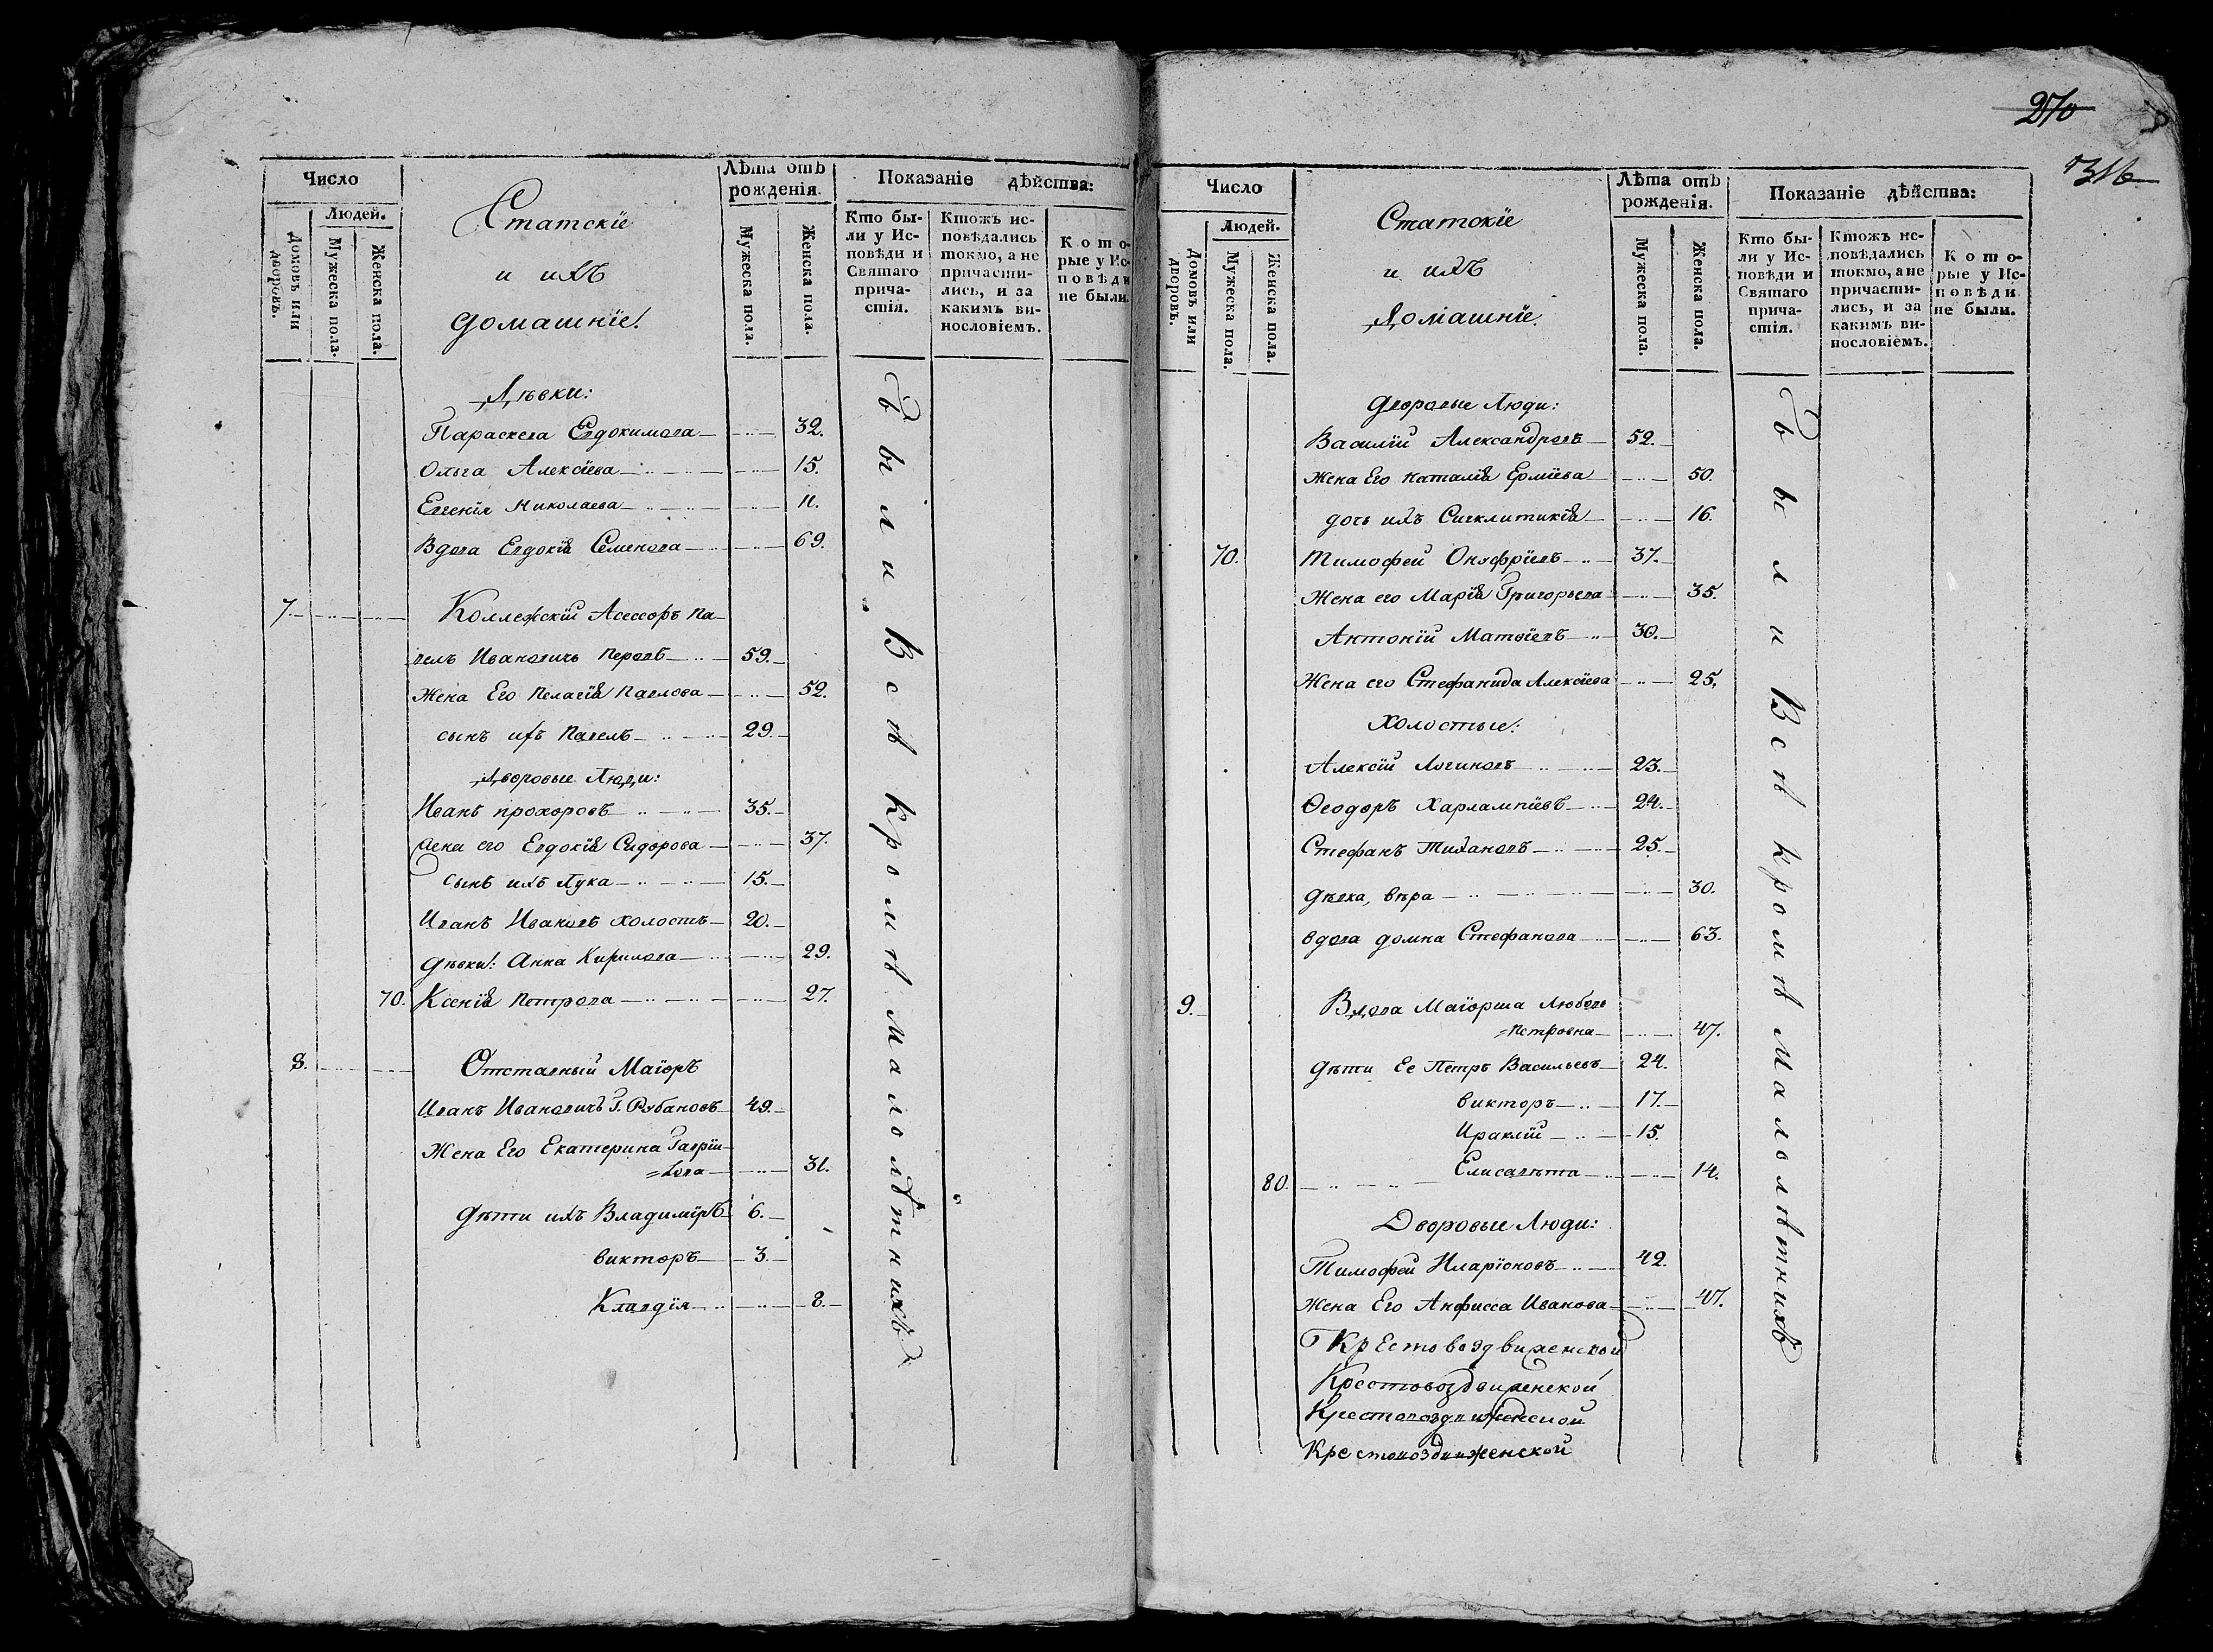 Число
Людей.
Домовъ или дворовъ.
Мужеска пола.
Женска пола.
Статскіе
и ихъ
домашніе.
Лѣта отъ
рожденія.
Мужеска пола.
Женска пола.
Показаніе дѣйства:
Кто бы-
ли у Ис-
повѣди и
Святаго
прича-
стія.
Ктожъ ис-
повѣдались
токмо, а не
причасти-
лись, и за
какимъ ви-
нословіемъ.
Кото-
рые у Ис-
повѣди
не были.
Дѣвки:
Параскева Евдокимова 32.
Ольга Алексіева 15.
Евгенія Николаева 11.
Вдова Евдокія Семенова 69.
7. Коллежскій Асессоръ Па-
велъ Ивановичь Перовъ 59.
Жена Его Пелагія Павлова 52.
сынъ ихъ Павелъ 29.
Дворовые Люди:
Иванъ Прохоровъ 35.
Жена его Евдокія Сидорова 37.
Сынъ ихъ Лука 15.
Иванъ Ивановъ холостъ 20.
Дѣвки: Анна Кирилова 29.
70. Ксенія Петрова 27.
8. Отставный Маіоръ
Иванъ Ивановичь Г. Рубановъ 49.
Жена Его Екатерина Гаврiи-
=лова 31.
Дѣти ихъ Владиміръ 6.
Викторъ 3.
Клавдія 8.
Были Всѣ кромѣ малолѣтнихъ
270
316
Число
Людей.
Домовъ или дворовъ.
Мужеска пола.
Женска пола.
Статскіе
и ихъ
Домашніе.
Лѣта отъ
рожденія.
Мужеска пола.
Женска пола.
Показаніе дѣйства:
Кто бы-
ли у Ис-
повѣди и
Святаго
прича-
стія.
Ктожъ ис-
повѣдались
токмо, а не
причасти-
лись, и за
какимъ ви-
нословіемъ.
Кото-
рые у Ис-
повѣди
не были.
Дворовые Люди:
Василій Александровъ 52.
Жена Его Наталія Ермiева 50.
дочь ихъ Сигклитикія 16.
70. Тимофей Онуфріевъ 37.
Жена его Марія Григорьева 35.
Антоній Матѳіевъ 30.
Жена его Стефанида Алексіева 25.
Холостые:
Алексій Логиновъ 23.
Ѳеодоръ Харлампіевъ 24.
Стефанъ Тихановъ 25.
Дѣвка, Вѣра 30.
Вдова Домна Стефанова 63.
9. Вдова Маіорша Любовь
=Петровна 47.
Дѣти Ее Петръ Васильевъ 24.
Викторъ 17.
Ираклій 15.
80. Елисавѣта 14.
Дворовые Люди:
Тимофей Иларіоновъ 42.
Жена Его Анфисса Иванова 47.
Крестовоздвиженской
Крестовоздвиженской
Крестовоздвиженской
Крестовоздвиженской
Были Всѣ кромѣ Малолѣтнихъ